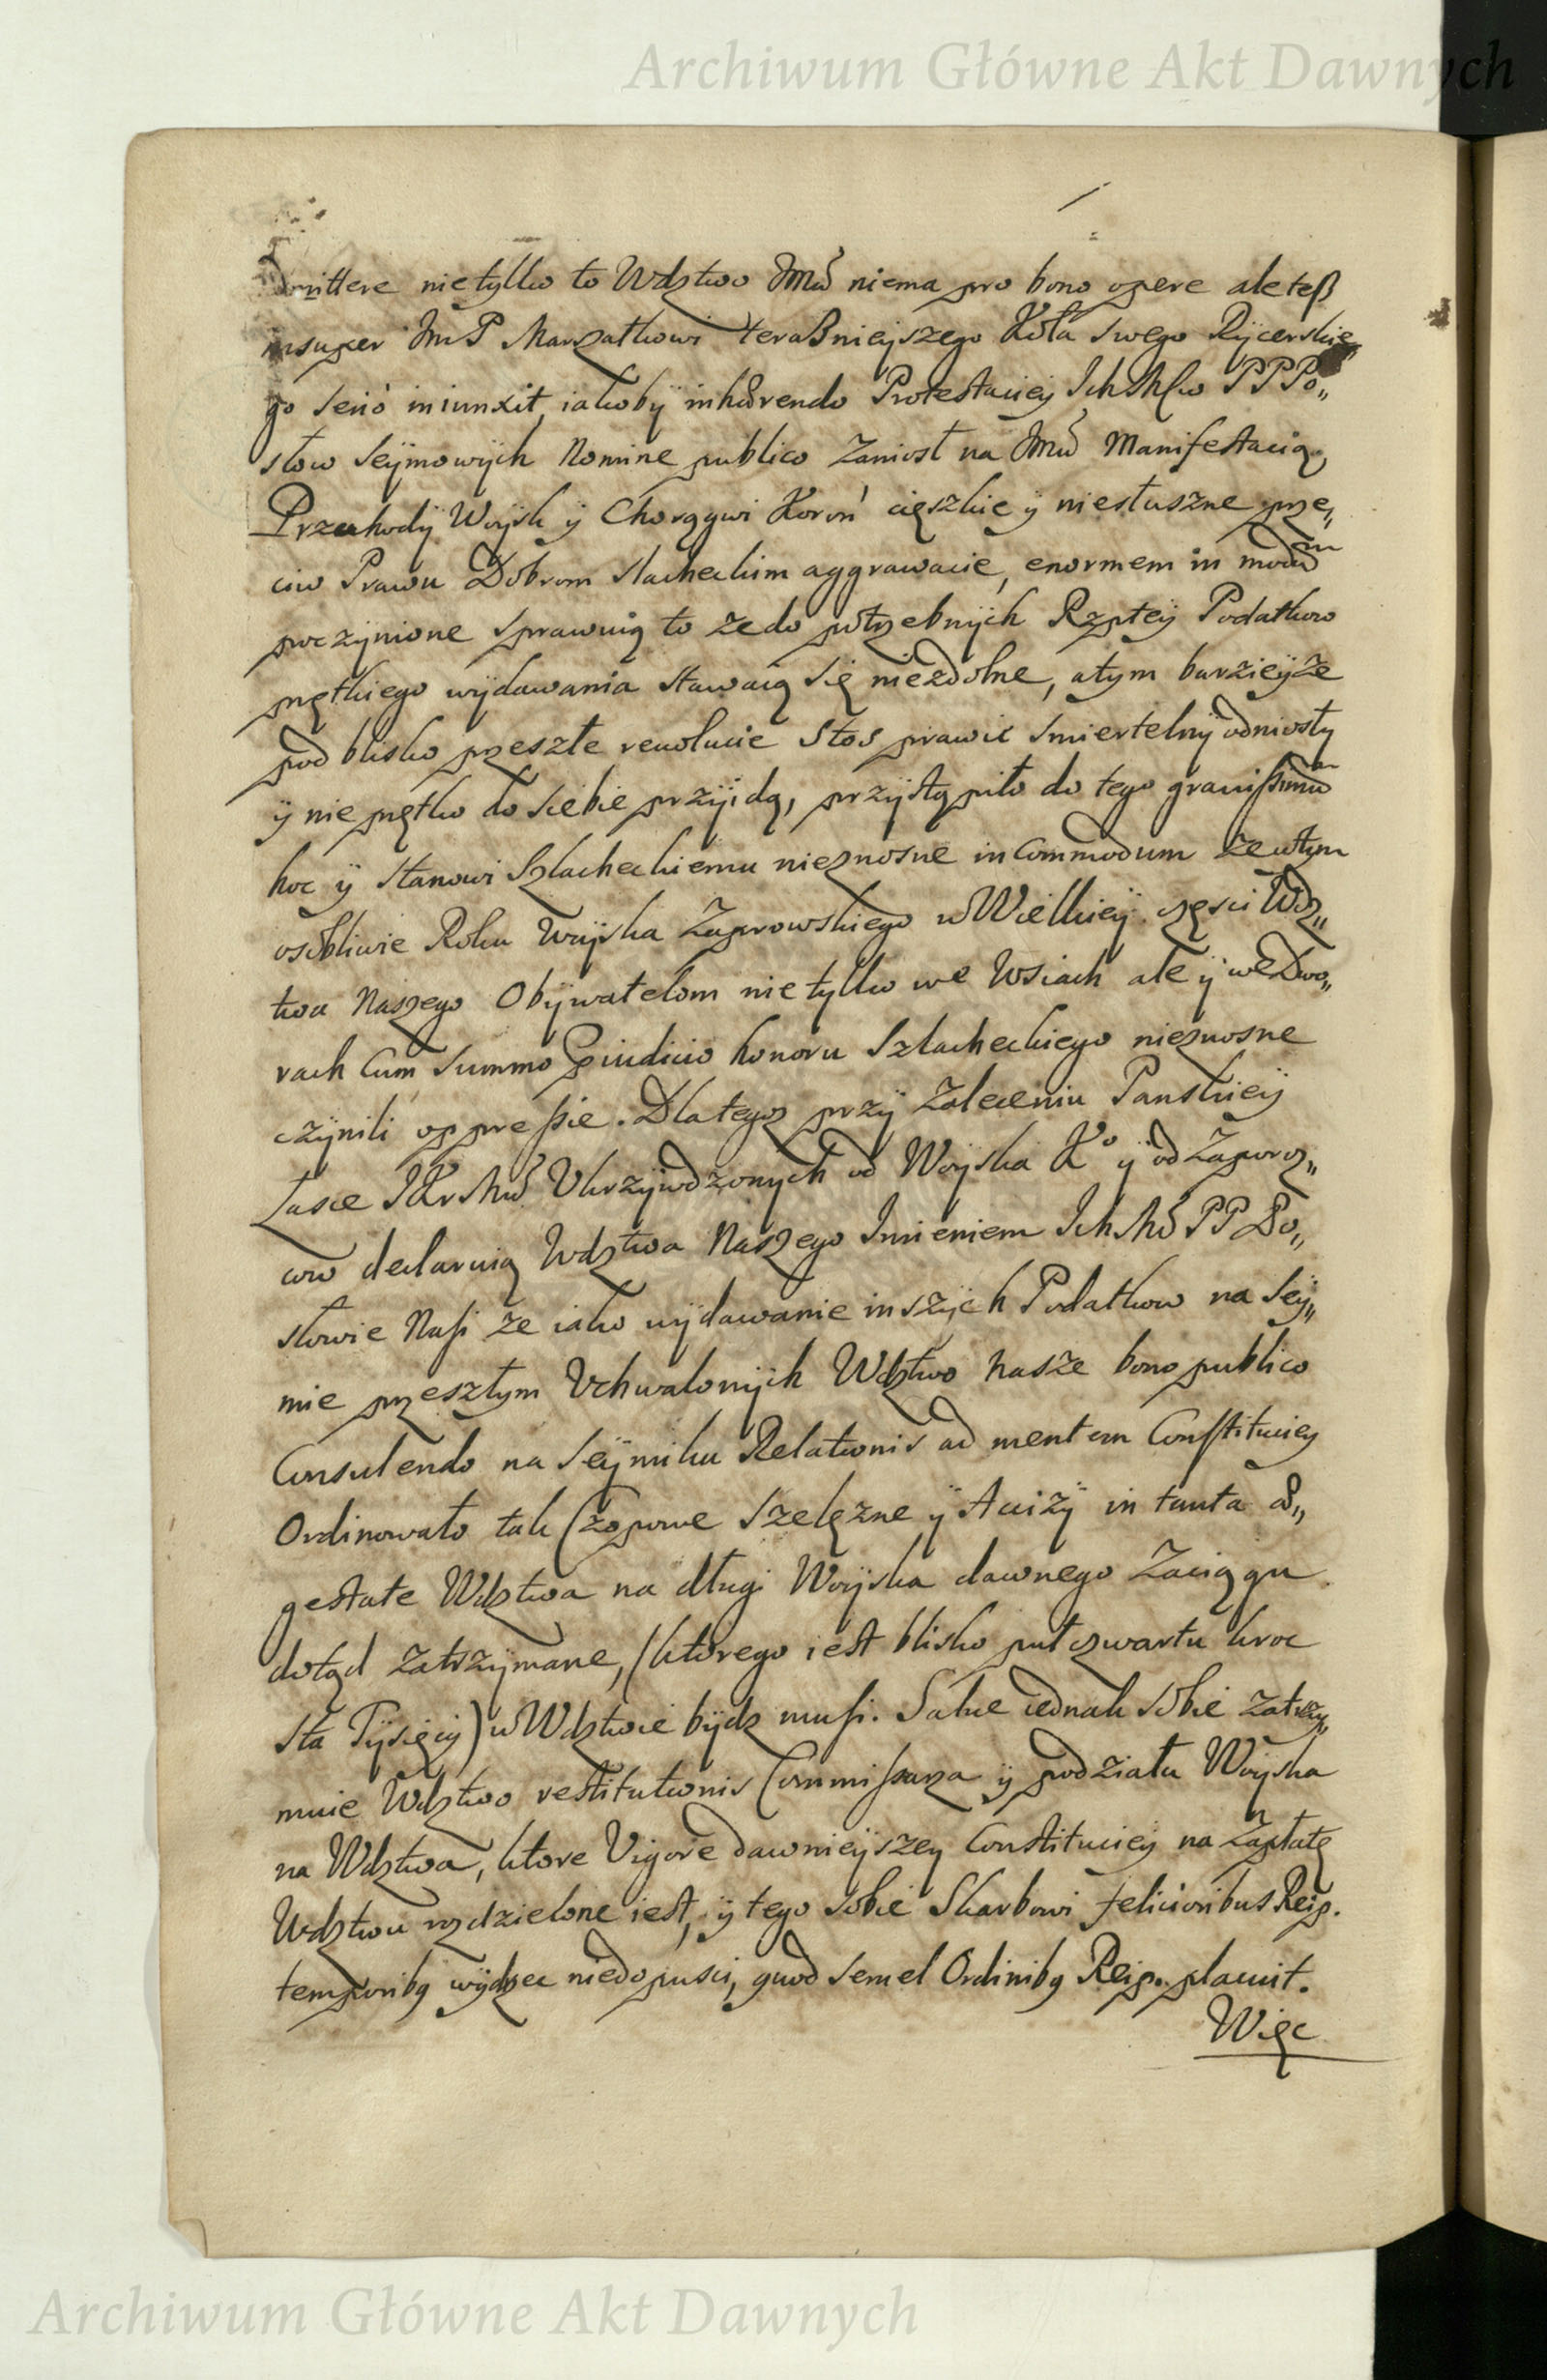 Archiwum Główne Akt Dawnych
mittere nietylko to Wdztwo Jmći niema pro bono opere ale teß
insuper Jm P Marszałkowi teraßnieyszego Koła swego Rycerskie
go serio iniunxit, iakoby inhærendo Protestaciey Ich Mśćw P P Po„
słow Seÿmowÿch Nomine publico Zaniosł na Jmći Manifestacią,
Przechodÿ Woÿsk ÿ Chorągwi Koroń cięszkie ÿ niesłuszne prze„
ciw Prawu Dobrom slacheckim aggrawacie, enormem in modum
poczÿnione sprawuią to że do potrzebnÿch Rzpteÿ Podatkow
prętkiego wÿdawania stawaią się niezdolne, a tym barzieÿ że
pod blisko przeszłe rewolucie Stos prawie smiertelnÿ odniosły
ÿ nie prętko do siebie przÿidą, przÿstąpiło do tego grauissimum
hoc ÿ stanowi Szlacheckiemu nieznosne incommodum że w tym
osobliwie Roku Woÿska Zaprowskiego w Wielkieÿ częsci Wdz„
twa Naszego Obÿwatelom nie tylko we Wsiach ale ÿ we Dwo„
rach Cum summo Pjiudicio honoru Szlacheckiego nieznosne
czÿnili oppressie. Dlategoz przÿ Zaleceniu Panskieÿ
Łasce JKr Mći Ukrzÿwdzonÿch od Woÿska Kº ÿ od Zaporoz„
cow declaruią Wdztwa Naszego Imieniem Ich Mć PP Po„
słowie Nasi że iako wÿdawanie inszÿch Podatkow na Seÿ„
mie przeszłym Uchwalonÿch Wdztwo Nasze bono publico
Consulendo na Seÿmiku Relationis ad mentem Constituciey
Ordinowało tak Czopowe Szelęzne ÿ Acizÿ in tanta æ„
gestate Wdztwa na długi Woÿska dawnego Zaciągu
dotąd zatrzÿmane, (ktorego iest blisko puł czwarta kroc
sta Tÿsięcÿ) w Wdztwie bÿdz musi. Salue iednak sobie zatrzy„
muie Wdztwo restitutionis Commissarza ÿ podziału Woÿska
na Wdztwa, ktore Vigore dawnieÿszey Constitucieÿ na Zapłatę
Wdztwu rozdzielone iest, ÿ tego sobie Skarbowi felicioribus Reip.
temporibq wÿdrzec niedopusci, quod semel Ordinibq Reip. placuit.
Więc
Archiwum Główne Akt Dawnych